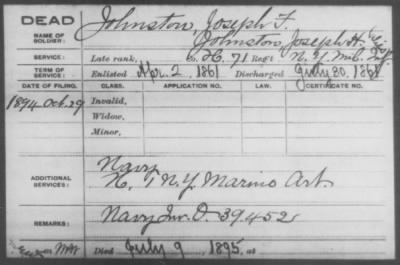 DEAD
Johnston, Joseph F.
NAME OF SOLDIER:
Johnston, Joseph H. (alias)
SERVICE:
Late rank, Co. H. 71 Reg't N.Y. Mil. Inf
TERM OF SERVICE:
Enlisted Apr. 2, 1861 Discharged July 30, 1861
DATE OF FILING. CLASS. APPLICATION NO. LAW. CERTIFICATE NO.
1894 Oct. 29 Invalid,
Widow,
Minor,
ADDITIONAL SERVICES:
Navy
H. 1 N.Y. Marine Art.
REMARKS:
Navy Inv. O. 39452
Died July 9, 1895, at